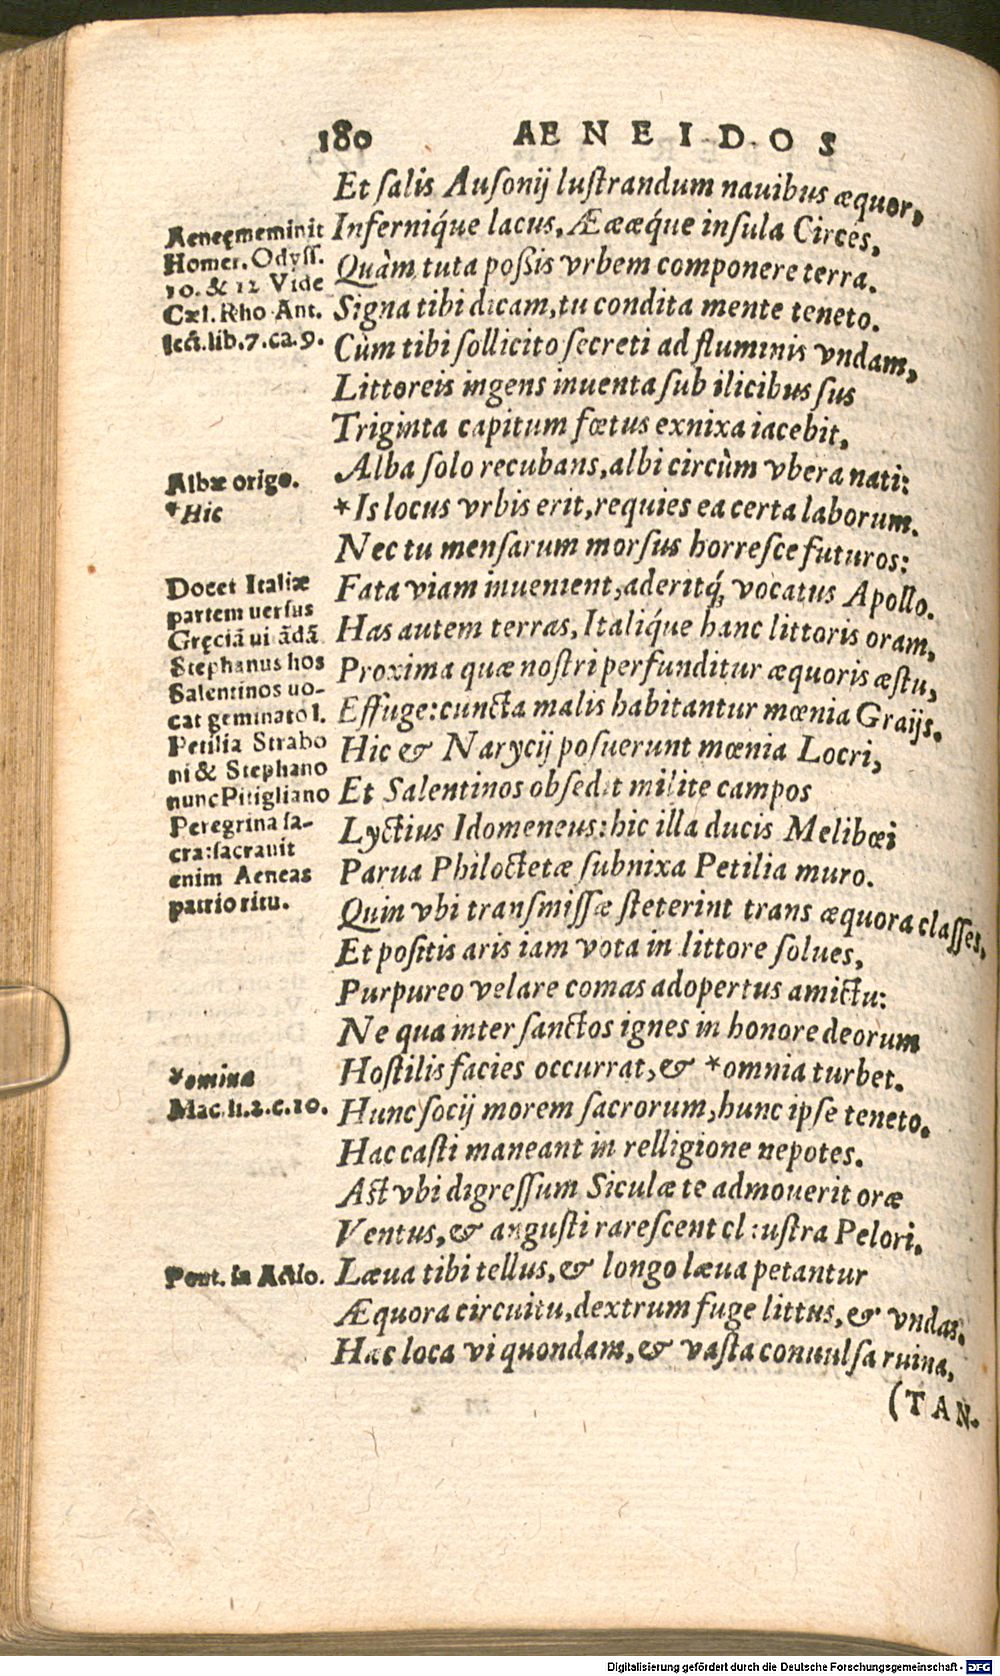 180 AENEIDOS
Et salis Ausonij lustrandum nauibus æquor,
Inferniq́ue lacus, Ææææq́ue insula Circes,
Quàm tuta poßis vrbem componere terra.
Signa tibi dicam, tu condita mente teneto.
Cùm tibi sollicito secreti ad fluminis vndam,
Littoreis ingens inuenta sub ilicibus sus
Triginta capitum fœtus exnixa iacebit,
Alba solo recubans, albi circùm vbera nati:
*Is locus vrbis erit, requies ea certa laborum.
Nec tu mensarum morsus horresce futuros:
Fata viam inuenient, aderitq́; vocatus Apollo.
Has autem terras, Italiq́ue hanc littoris oram,
Proxima quæ nostri perfunditur æquoris æstu,
Effuge: cuncta malis habitantur mœnia Graijs.
Hic & Narycij posuerunt mœnia Locri,
Et Salentinos obsedit milite campos
Lyctius Idomeneus: hic illa ducis Melibœi
Parua Philoctetæ subnixa Petilia muro.
Quin vbi transmissæ steterint trans æquora classes,
Et positis aris iam vota in littore solues,
Purpureo velare comas adopertus amictu:
Ne qua inter sanctos ignes in honore deorum
Hostilis facies occurrat, & *omnia turbet.
Hunc socij morem sacrorum, hunc ipse teneto.
Hac casti maneant in relligione nepotes.
Ast vbi digressum Siculæ te admouerit oræ
Ventus, & angusti rarescent claustra Pelori.
Læua tibi tellus, & longo læua petantur
Æquora circuitu, dextrum fuge littus, & vndas.
Hæc loca vi quondam, & vasta conuulsa ruina,
(TAN.
Aeneę meminit
Homer. Odyss.
10. & 12 Vide
Cæl. Rho Ant.
lect. lib. 7. ca. 9.
Albæ origo.
*Hic
Docet Italiæ
partem uersus
Gręciā uitādā
Stephanus hos
Salentinos uo-
cat geminato l.
Petilia Strabo
ni & Stephano
nunc Pitigliano
Peregrina sa-
cra: sacrauit
enim Aeneas
patrio ritu.
*omina
Mac. li. 2. c. 10.
Pont. in Actio.
Digitalisierung gefördert durch die Deutsche Forschungsgemeinschaft - DFG